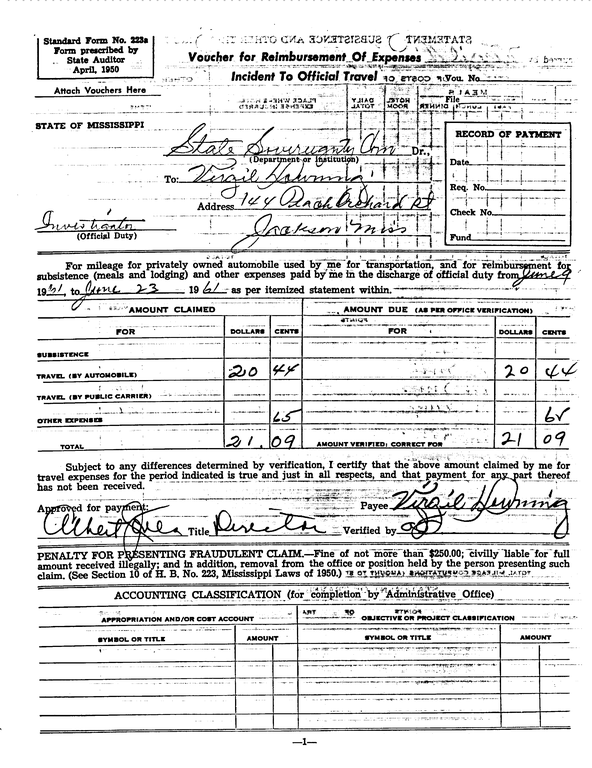 Standard Form No. 223a
Form prescribed by
State Auditor
April, 1950
Attach Vouchers Here
Voucher for Reimbursement Of Expenses
Incident To Official Travel
Vou. No.
File
STATE OF MISSISSIPPI
State Sovereignty Com Dr.,
(Department or Institution)
To: Virgil Downing
Address 144 Peach Orchard St
Jackson Miss
Investigator
(Official Duty)
RECORD OF PAYMENT
Date
Req. No.
Check No.
Fund
For mileage for privately owned automobile used by me for transportation, and for reimbursement for
subsistence (meals and lodging) and other expenses paid by me in the discharge of official duty from June 9
1961, to June 23 1961 as per itemized statement within.
AMOUNT CLAIMED AMOUNT DUE (AS PER OFFICE VERIFICATION)
FOR DOLLARS CENTS FOR DOLLARS CENTS
SUBSISTENCE
TRAVEL (BY AUTOMOBILE) 20 44 20 44
TRAVEL (BY PUBLIC CARRIER)
OTHER EXPENSES 65 65
TOTAL 21.09 AMOUNT VERIFIED; CORRECT FOR 21 09
Subject to any differences determined by verification, I certify that the above amount claimed by me for
travel expenses for the period indicated is true and just in all respects, and that payment for any part thereof
has not been received.
Approved for payment: Payee Virgil Downing
Albert Jones Title Director Verified by
PENALTY FOR PRESENTING FRAUDULENT CLAIM.—Fine of not more than $250.00; civilly liable for full
amount received illegally; and in addition, removal from the office or position held by the person presenting such
claim. (See Section 10 of H. B. No. 223, Mississippi Laws of 1950.)
ACCOUNTING CLASSIFICATION (for completion by Administrative Office)
APPROPRIATION AND/OR COST ACCOUNT OBJECTIVE OR PROJECT CLASSIFICATION
SYMBOL OR TITLE AMOUNT SYMBOL OR TITLE AMOUNT
—1—